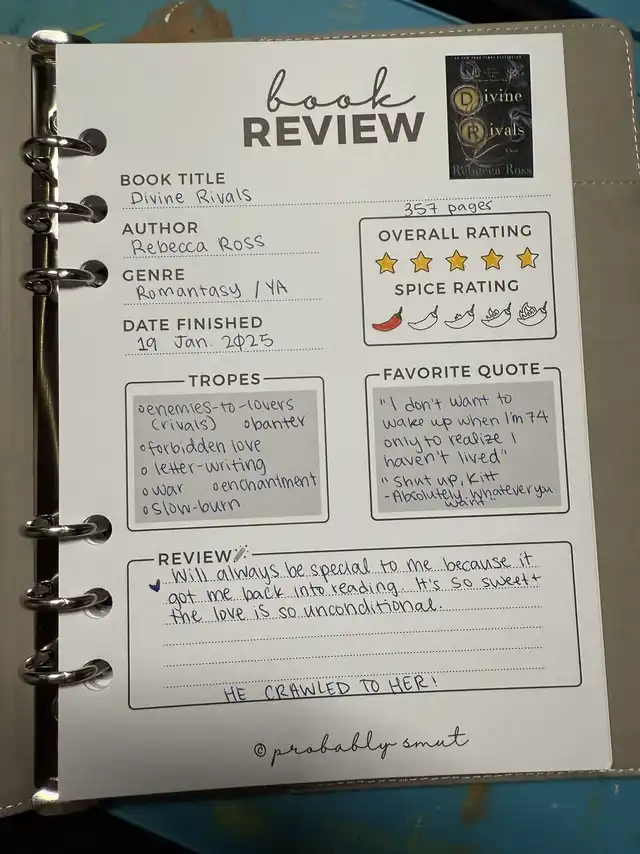 book
REVIEW
Divine
Rivals
Rebecca Ross
BOOK TITLE
Divine Rivals
357 pages
AUTHOR
Rebecca Ross
GENRE
Romantasy / YA
DATE FINISHED
19 Jan. 2025
OVERALL RATING
SPICE RATING
TROPES
enemies-to-lovers
(rivals) banter
forbidden love
letter-writing
war enchantment
slow-burn
FAVORITE QUOTE
"I don't want to
wake up when I'm 74
only to realize I
haven't lived"
"Shut up, Kitt
-Absolutely. Whatever you
want."
REVIEW
Will always be special to me because it
got me back into reading. It's so sweet +
the love is so unconditional.
HE CRAWLED TO HER!
© probably smut